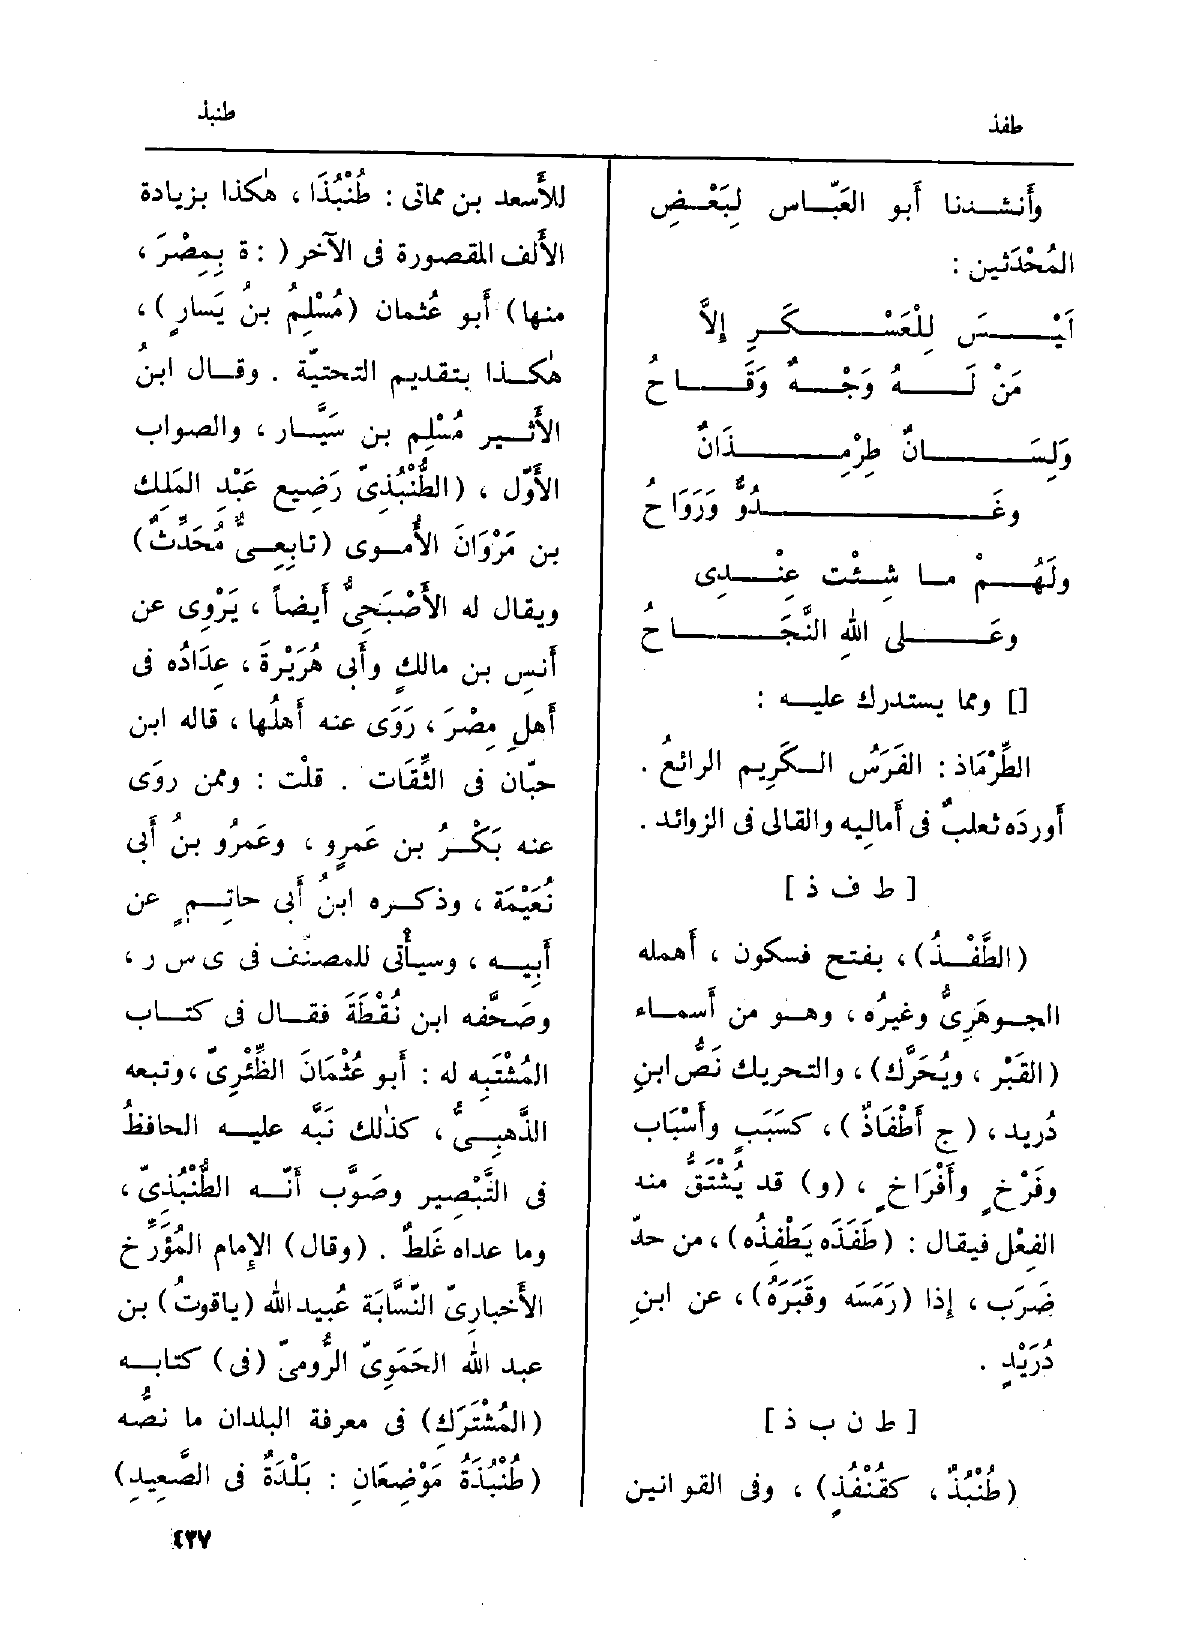 طفذ
طنبذ
وأَنشدنا أَبو العَبّاس لِبَعْضِ
المُحْدَثين :
لَيْسَ لِلْعَسْكَرِ إِلاَّ
مَنْ لَهُ وَجْهٌ وَقَاحُ
وَلِسَانٌ طِرْمِذَانٌ
وغَدُوٌّ وَرَوَاحُ
ولَهُمْ ما شِئْت عِنْدِى
وعَلى اللهِ النَّجَاحُ
[] ومما يستدرك عليه :
الطِّرْمَاذ : الفَرَسُ الكَرِيم الرائعُ .
أَوردَه ثعلبٌ فى أَماليه والقالى فى الزوائد .
[ ط ف ذ ]
(الطَّفْذُ) ، بفتح فسكون ، أَهمله
الجوهَرِىُّ وغيرُه ، وهو من أَسماء
(القَبْر ، ويُحَرَّك) ، والتحريك نَصُّ ابنِ
دُريد ، ( ج أَطْفَاذٌ ) ، كسَبَبٍ وأَسْبَاب
وفَرْخٍ وأَفْرَاخٍ ، (و) قد يُشْتَقُّ منه
الفِعْل فيقال : (طَفَذَه يَطْفِذُه) ، من حدّ
ضَرَب ، إِذا (رَمَسَه وقَبَرَهُ) ، عن ابنِ
دُرَيْدٍ .
[ ط ن ب ذ ]
(طُنْبُذٌ ، كقُنْفُذٍ) ، وفى القوانين
للأَسعد بن مماتى : طُنْبُذَا ، هٰكذا بزيادة
الأَلف المقصورة فى الآخر ( : ة بِمِصْرَ ،
منها) أَبو عُثمان (مُسْلِمُ بنُ يَسارٍ) ،
هٰكذا بتقديم التحتيّة . وقال ابنُ
الأَثير مُسْلِم بن سَيَّار ، والصواب
الأَوّل ، (الطُّنْبُذِىّ رَضِيع عَبْدِ المَلِك
بن مَرْوَانَ الأُموى (تابِعِىٌّ مُحَدِّثٌ)
ويقال له الأَصْبَحِىُّ أَيضاً ، يَرْوِى عن
أَنسِ بن مالكٍ وأَبى هُرَيْرَةَ ، عِدَادُه فى
أَهلِ مِصْرَ ، رَوَى عنه أَهلُها ، قاله ابن
حبّان فى الثِّقَات . قلْت : وممن روَى
عنه بَكْرُ بن عَمرٍو ، وعَمرُو بنُ أَبى
نُعَيْمَة ، وذكره ابنُ أَبى حاتِمٍ عن
أَبِيه ، وسيأْتى للمصنّف فى ى س ر ،
وصَحَّفه ابن نُقْطَةَ فقال فى كتاب
المُشْتَبِه له : أَبو عُثْمَانَ الظِّئْرِىّ ، وتبعه
الذَّهبىُّ ، كذٰلك نَبَّه عليه الحافظُ
فى التَّبْصِير وصَوَّب أَنّه الطُّنْبُذِىّ ،
وما عداه غَلَطٌ . (وقال) الإِمام المُؤَرِّخ
الأَخبارِىّ النَّسَّابَة عُبيد الله (ياقوتُ) بن
عبد الله الحَمَوِىّ الرُّومىّ (فى) كتابه
(المُشْتَرَك) فى معرفة البلدان ما نصُّه
(طُنْبُذَةُ مَوْضِعَانِ : بَلْدَةٌ فى الصَّعِيدِ)
٤٣٧